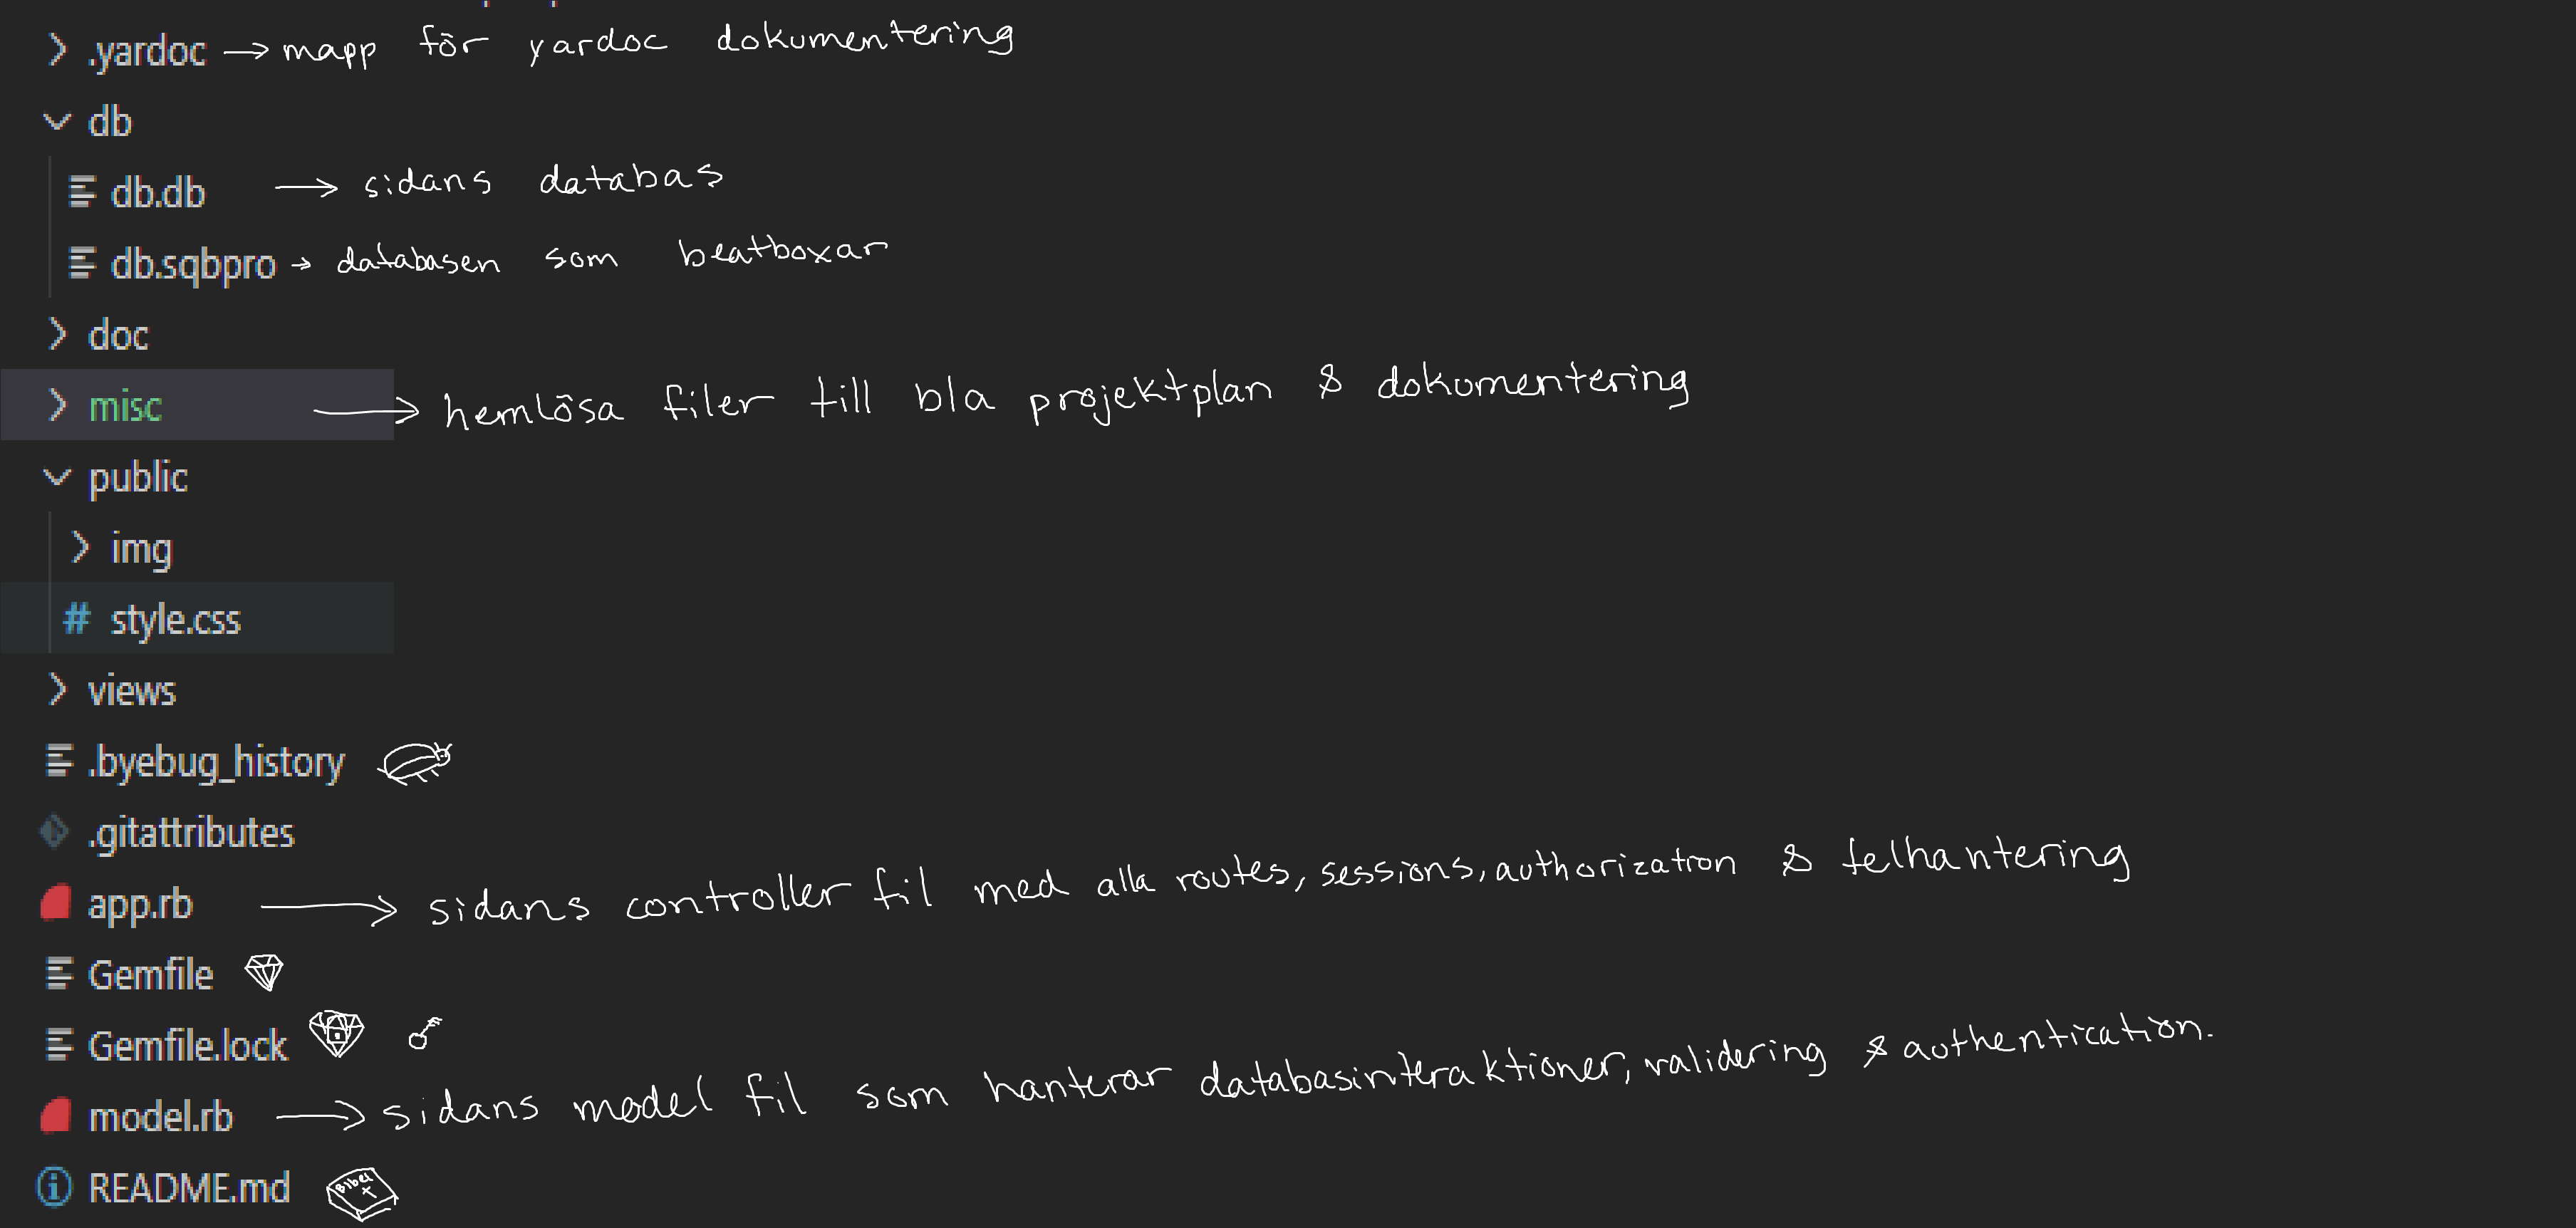 .yardoc → mapp för yardoc dokumentering
db
db.db → sidans databas
db.sqbpro → databasen som beatboxar
doc
misc → hemlösa filer till bla projektplan & dokumentering
public
img
# style.css
views
.byebug_history
.gitattributes
app.rb → sidans controller fil med alla routes, sessions, authorization & felhantering
Gemfile
Gemfile.lock
model.rb → sidans model fil som hanterar databasinteraktioner, validering & authentication.
README.md Bibel